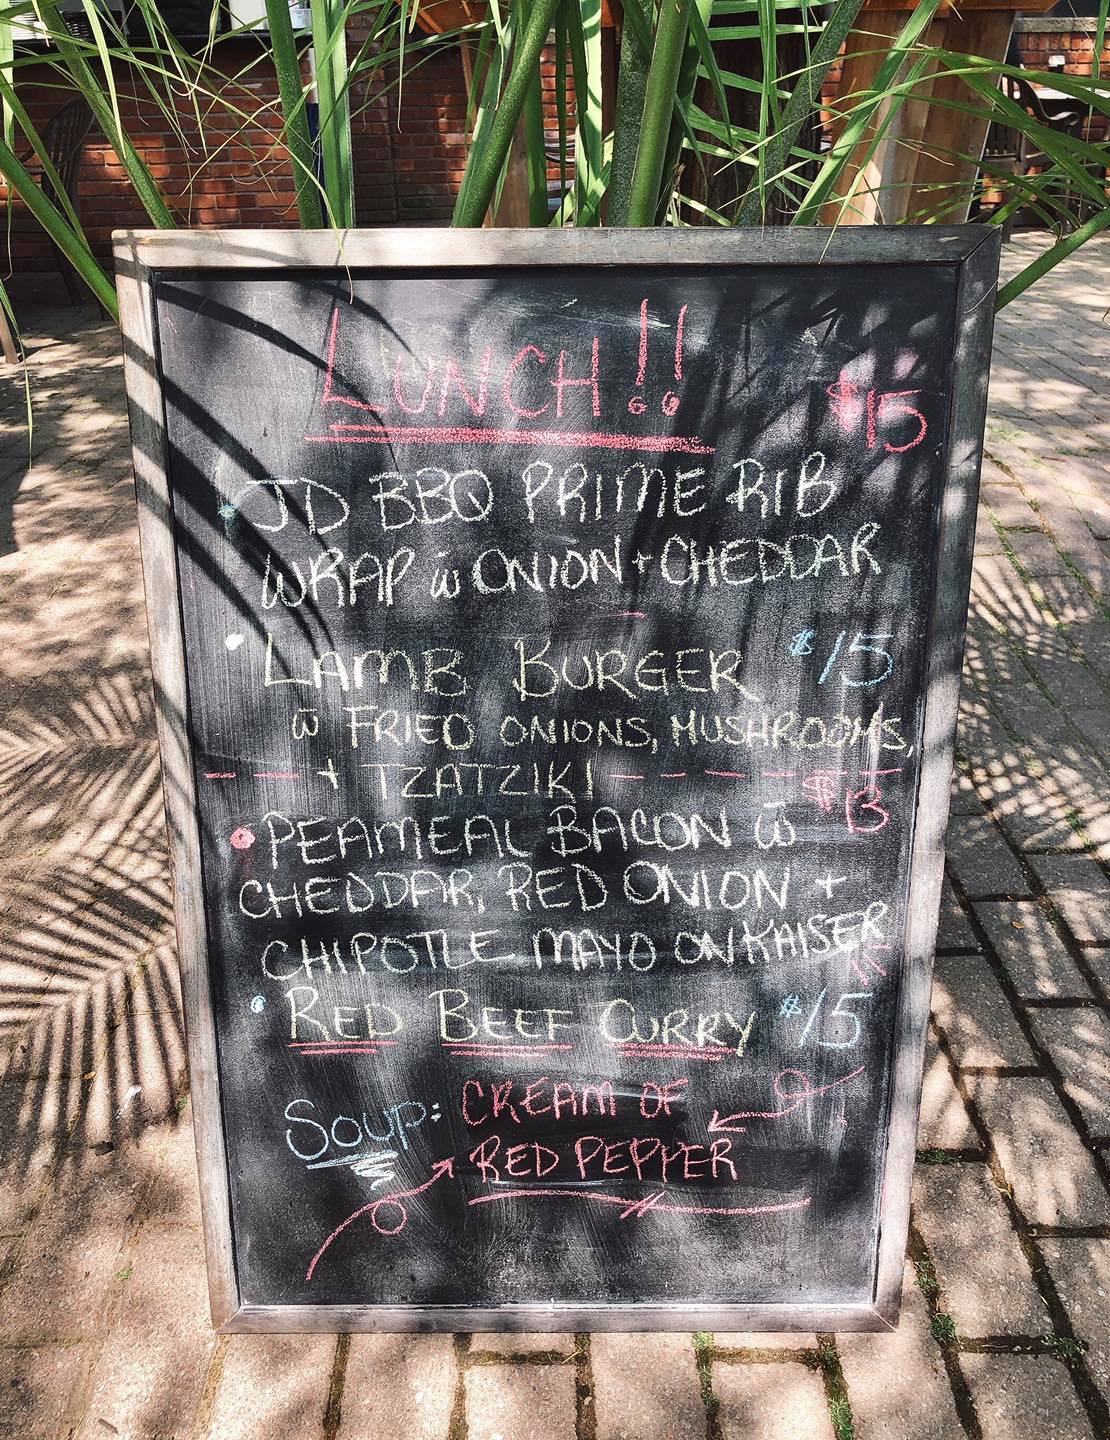 LUNCH!!
$15
JD BBQ PRIME RIB
WRAP w̄ ONION + CHEDDAR
LAMB BURGER $15
w̄ FRIED ONIONS, MUSHROOMS,
+ TZATZIKI
$13
PEAMEAL BACON w̄
CHEDDAR, RED ONION +
CHIPOTLE MAYO ON KAISER
RED BEEF CURRY $15
SOUP: CREAM OF
RED PEPPER